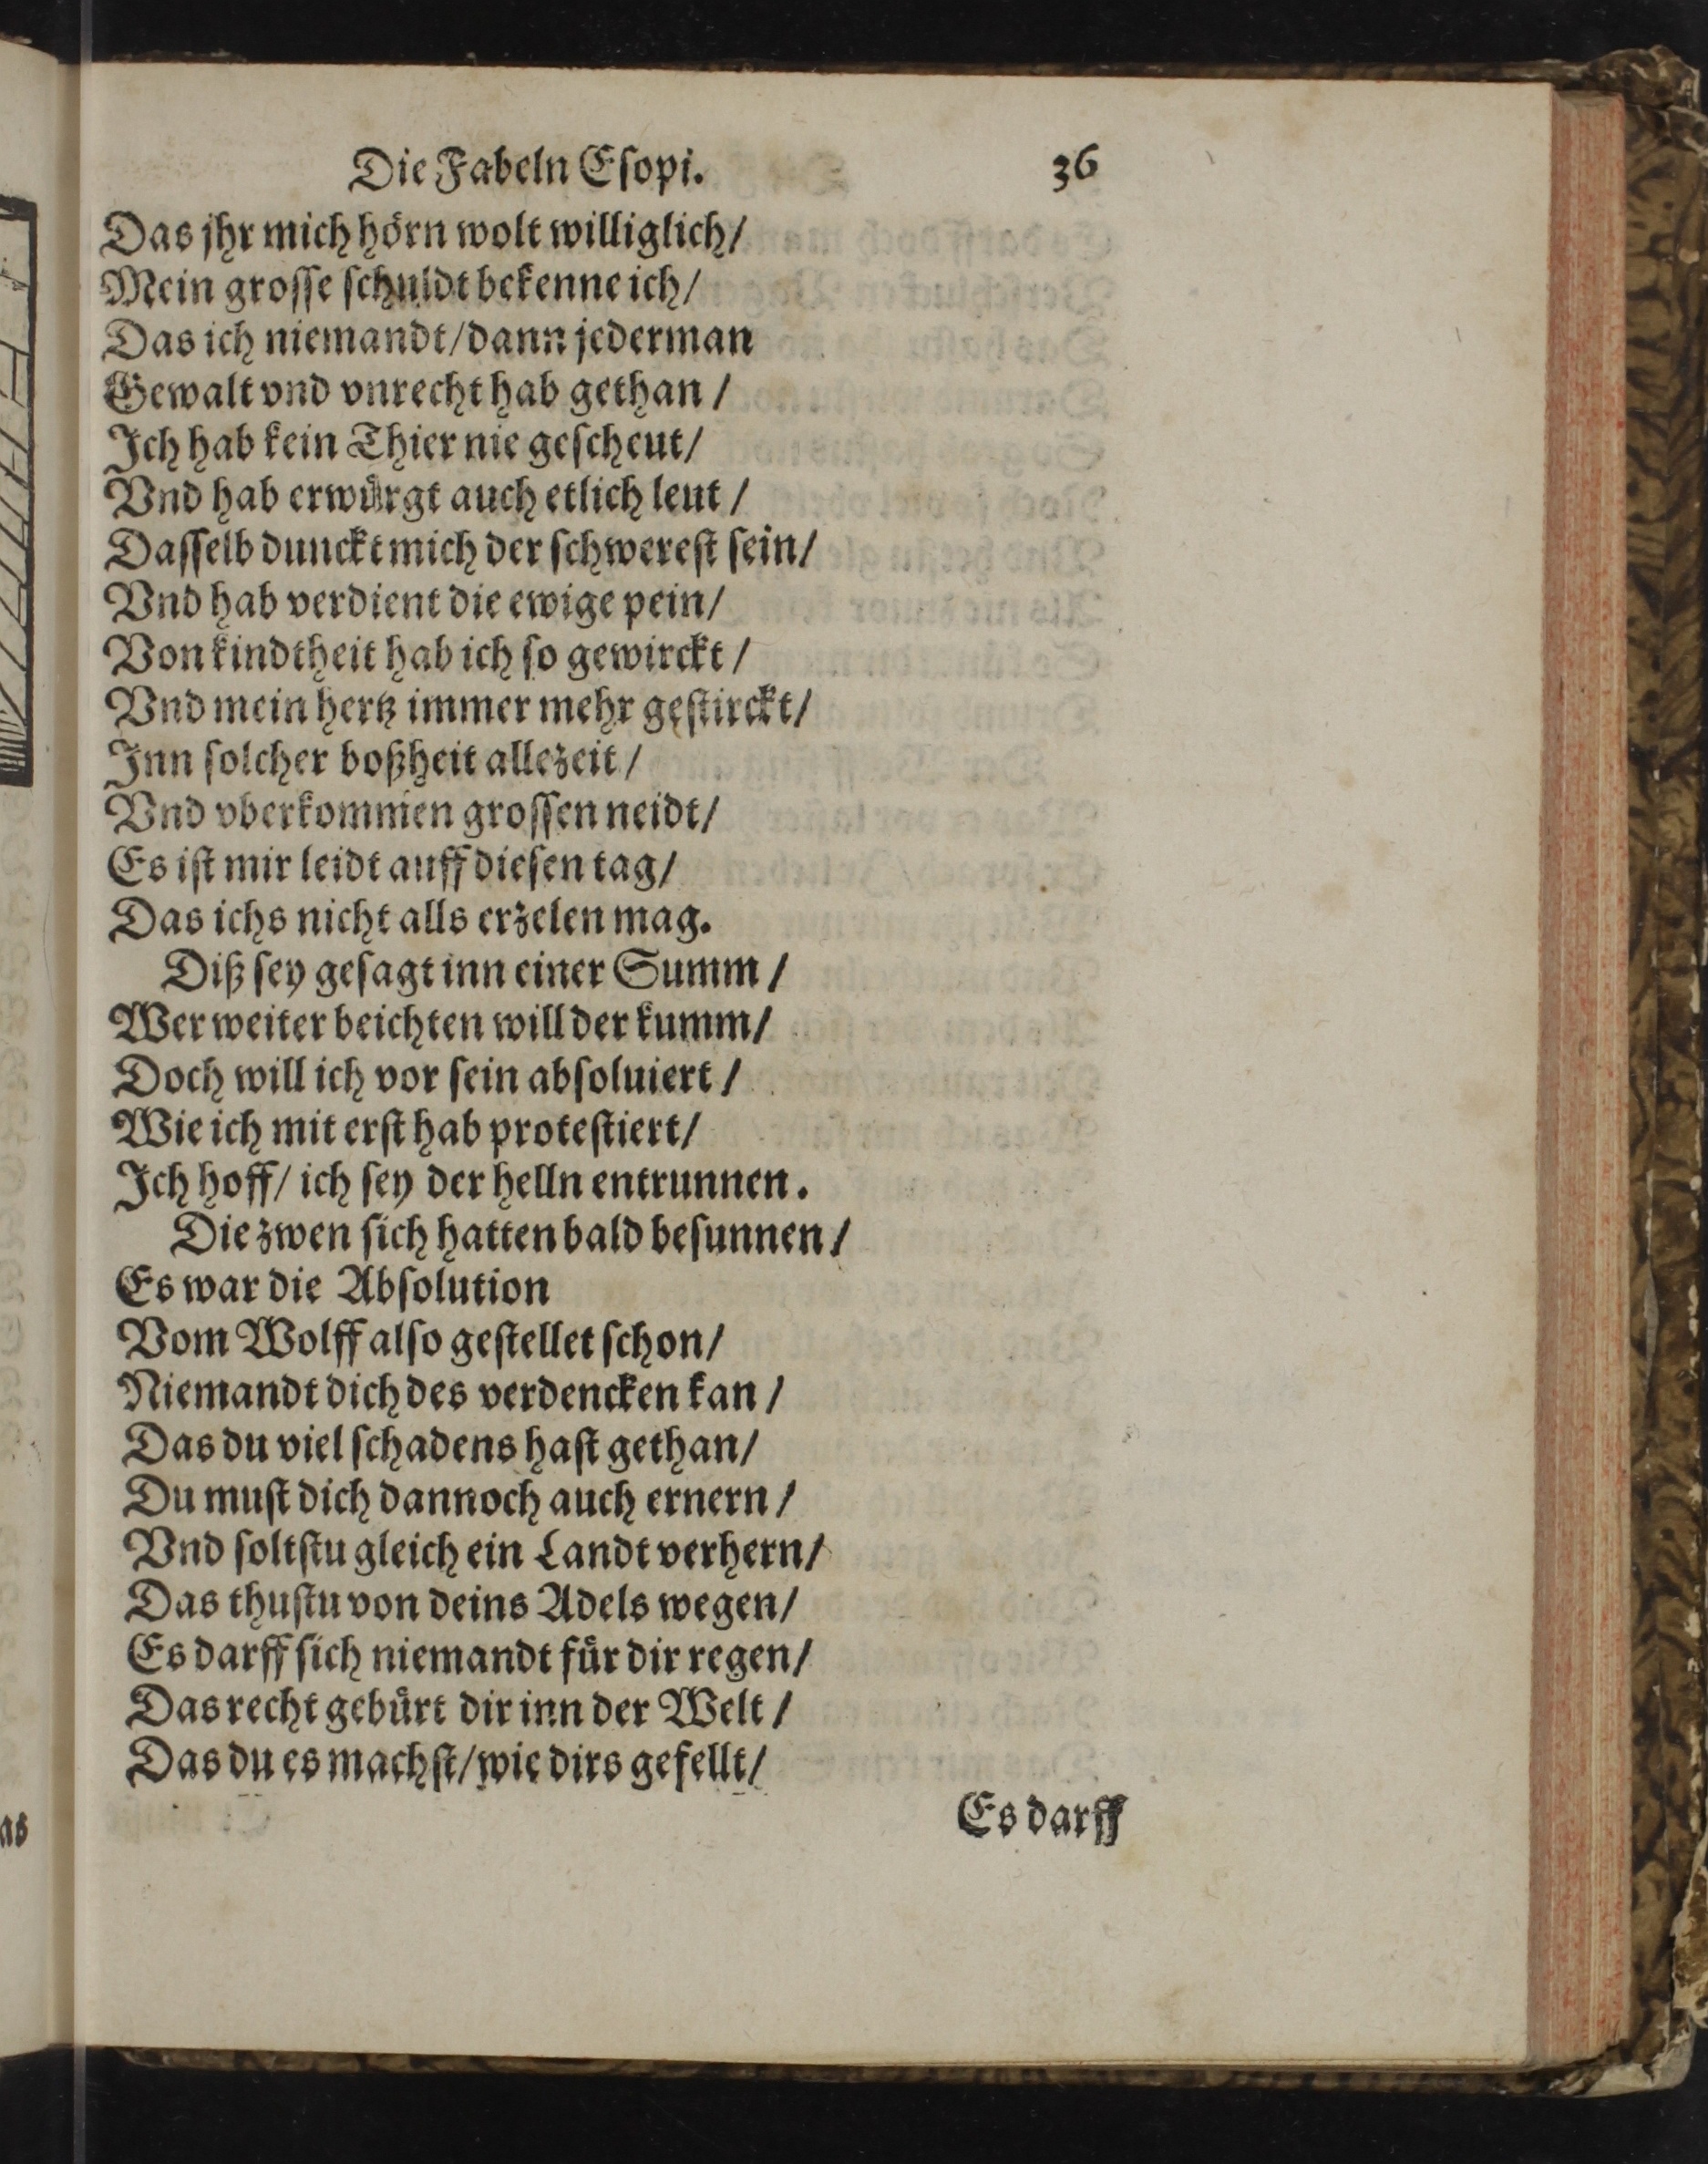 Die Fabeln Eſopi. 36
Das jhr mich hoͤrn wolt williglich/
Mein groſſe ſchuldt bekenne ich/
Das ich niemandt/dann jederman
Gewalt vnd vnrecht hab gethan /
Ich hab kein Thier nie geſcheut/
Vnd hab erwuͤrgt auch etlich leut /
Daſſelb dunckt mich der ſchwereſt ſein/
Vnd hab verdient die ewige pein/
Von kindtheit hab ich ſo gewirckt /
Vnd mein hertz immer mehr geſtirckt/
Inn ſolcher boßheit allezeit /
Vnd vberkommen groſſen neidt/
Es iſt mir leidt auff dieſen tag/
Das ichs nicht alls erzelen mag.
Diß ſey geſagt inn einer Summ /
Wer weiter beichten will der kumm/
Doch will ich vor ſein abſoluiert /
Wie ich mit erſt hab proteſtiert/
Ich hoff/ ich ſey der helln entrunnen.
Die zwen ſich hatten bald beſunnen/
Es war die Abſolution
Vom Wolff alſo geſtellet ſchon/
Niemandt dich des verdencken kan /
Das du viel ſchadens haſt gethan/
Du muſt dich dannoch auch ernern /
Vnd ſoltſtu gleich ein Landt verhern/
Das thuſtu von deins Adels wegen/
Es darff ſich niemandt fuͤr dir regen/
Das recht gebuͤrt dir inn der Welt /
Das du es machſt/wie dirs gefellt/
Es darff
as